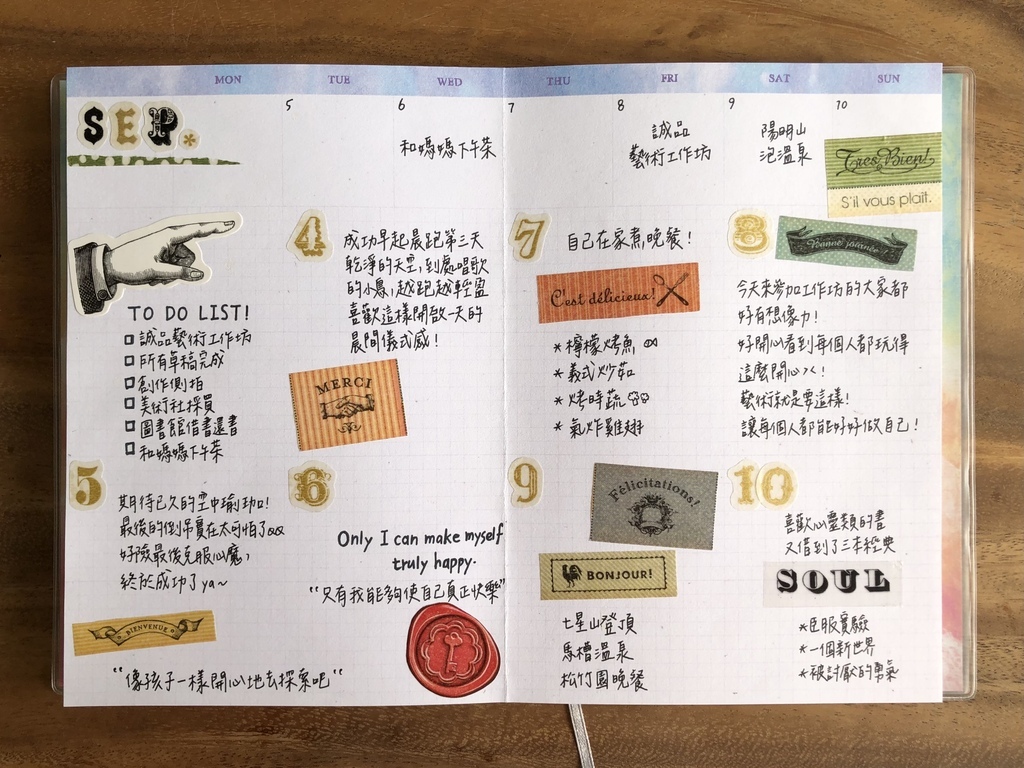 MON TUE WED THU FRI SAT SUN
5 6 7 8 9 10
SEP.
和媽媽下午茶
誠品
藝術工作坊
陽明山
泡溫泉
Très Bien!
S'il vous plaît.
TO DO LIST!
誠品藝術工作坊
所有草稿完成
創作側拍
美術社採買
圖書館借書還書
和媽媽下午茶
4
成功早起晨跑第三天
乾淨的天空,到處唱歌
的小鳥,越跑越輕盈
喜歡這樣開啟一天的
晨間儀式感!
MERCI
7
自己在家煮晚餐!
C'est délicieux!
*檸檬烤魚
*義式炒菇
*烤時蔬
*氣炸雞翅
8
Bonne journée
今天來參加工作坊的大家都
好有想像力!
好開心看到每個人都玩得
這麼開心
藝術就是要這樣!
讓每個人都能好好做自己!
5
期待已久的空中瑜珈!
最後的倒吊實在太可怕了
好險最後克服心魔,
終於成功了ya~
BIENVENUE
"像孩子一樣開心地去探索吧"
6
Only I can make myself
truly happy.
"只有我能夠使自己真正快樂"
9
Félicitations!
BONJOUR!
七星山登頂
馬槽溫泉
松竹園晚餐
10
喜歡心靈類的書
又借到了三本經典
SOUL
*臣服實驗
*一個新世界
*被討厭的勇氣